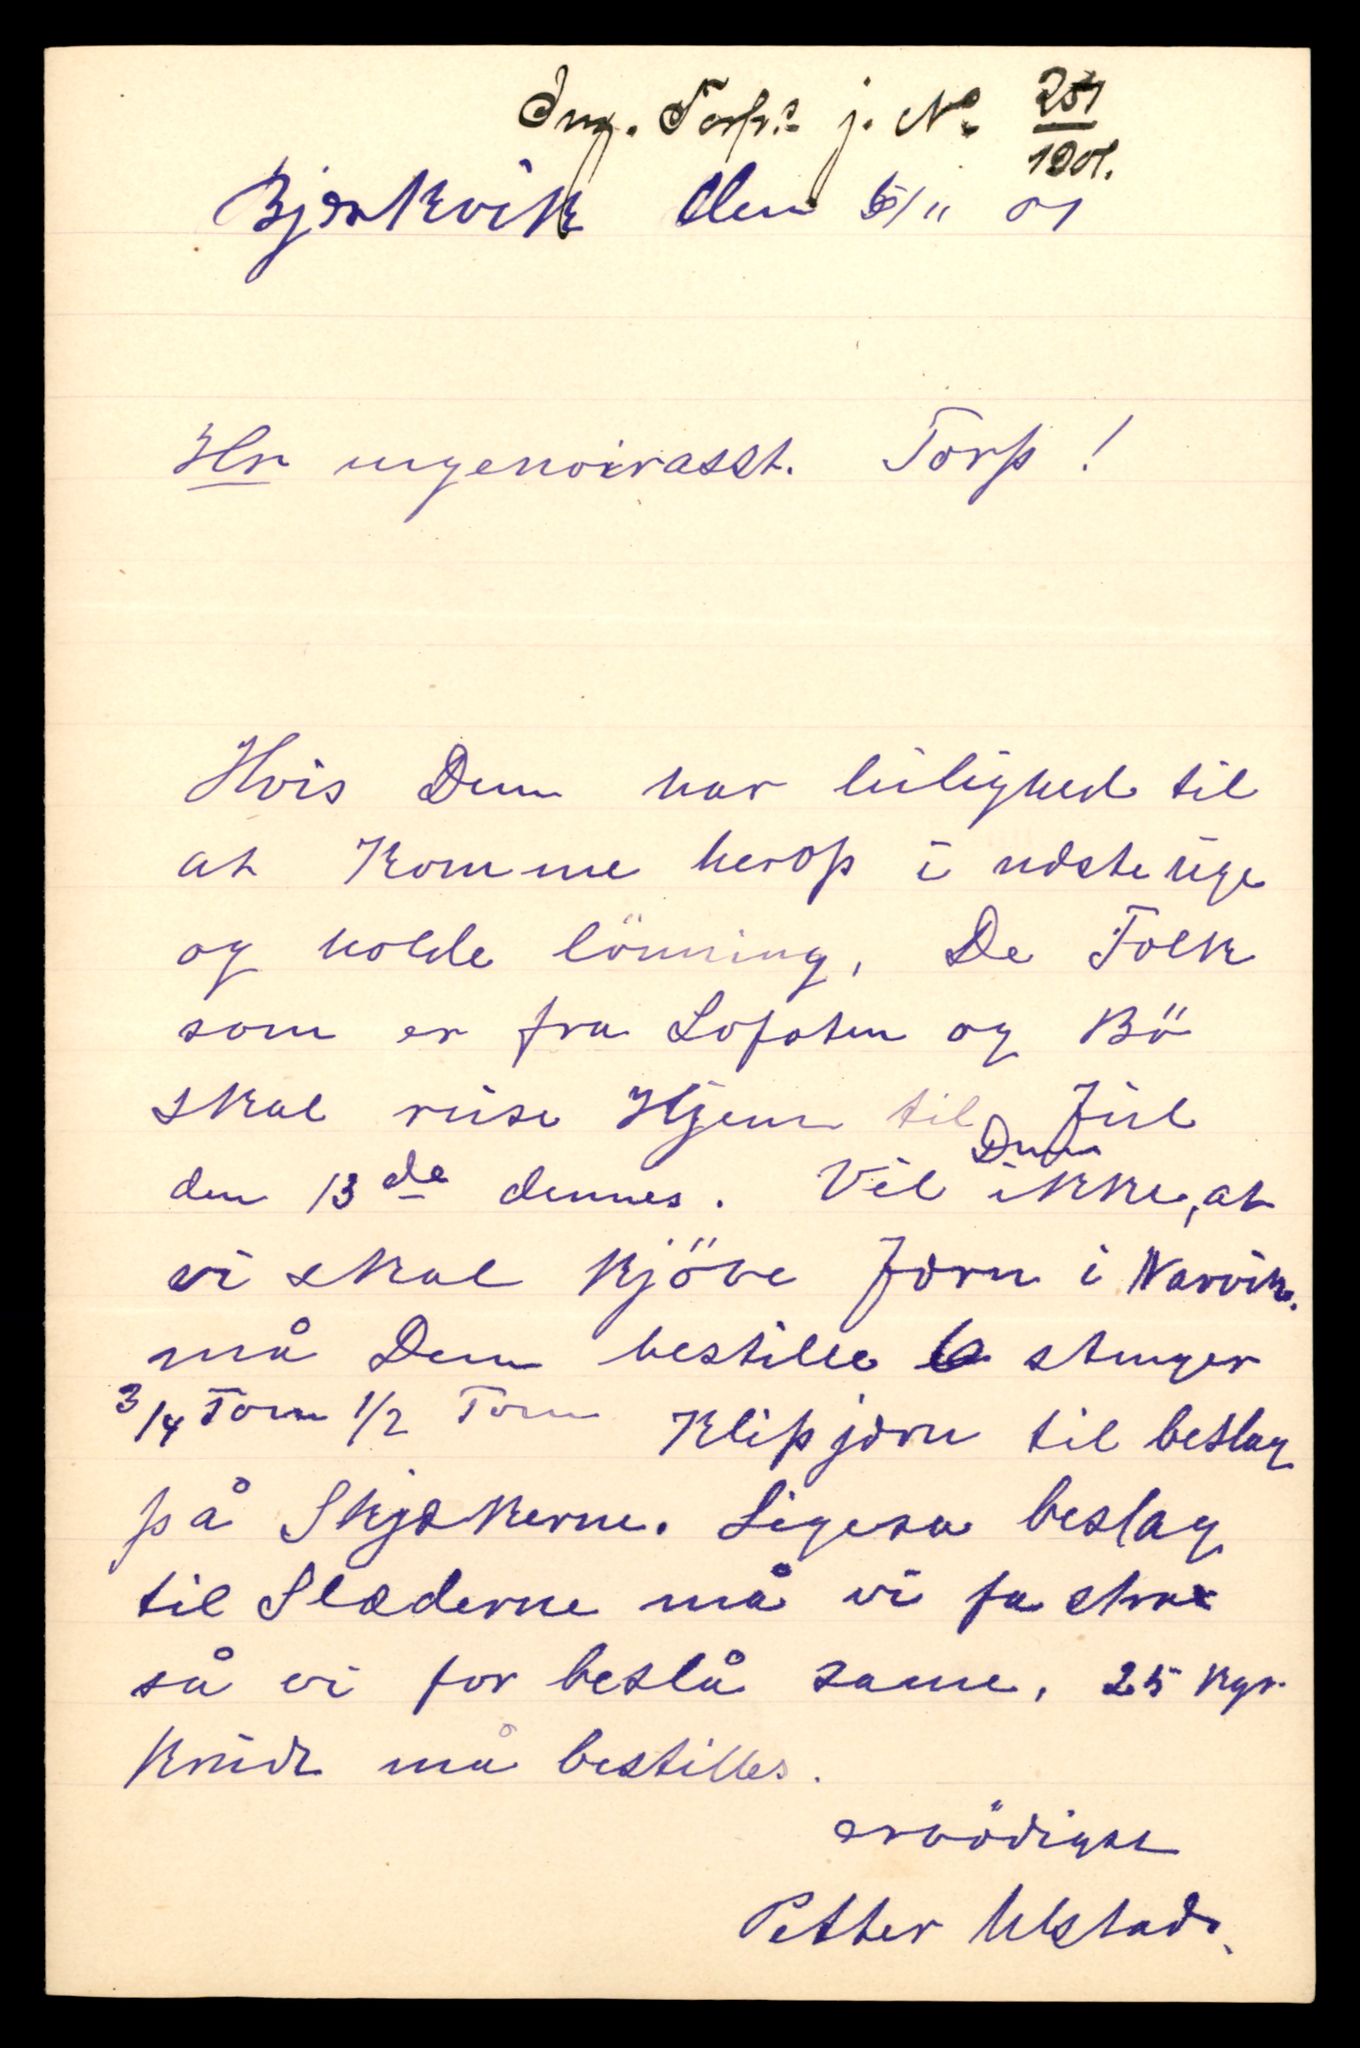 Ing. Torp's j. No 251/1901.
Bjerkvik den 5/11 01
Hr ingenoirasst. Torp!
Hvis Dem har leilighed til
at komme herop i ndste uge
og holde lönning, De Folk
som er fra Lofoten og Bö
skal reise Hjem til Jul
den 13de dennes. Vil Dem ikke, at
vi skal kjöbe Jærn i Narvik.
må Dem bestille 6 stenger
3/4 Tom 1/2 Tom Klipjærn til beslag
på Skjækerne. Ligesa beslag
til Slæderne må vi fa strax
så vi for beslå same, 25 kgr.
Krudt må bestilles.
ærbödigst
Petter Ulstad.